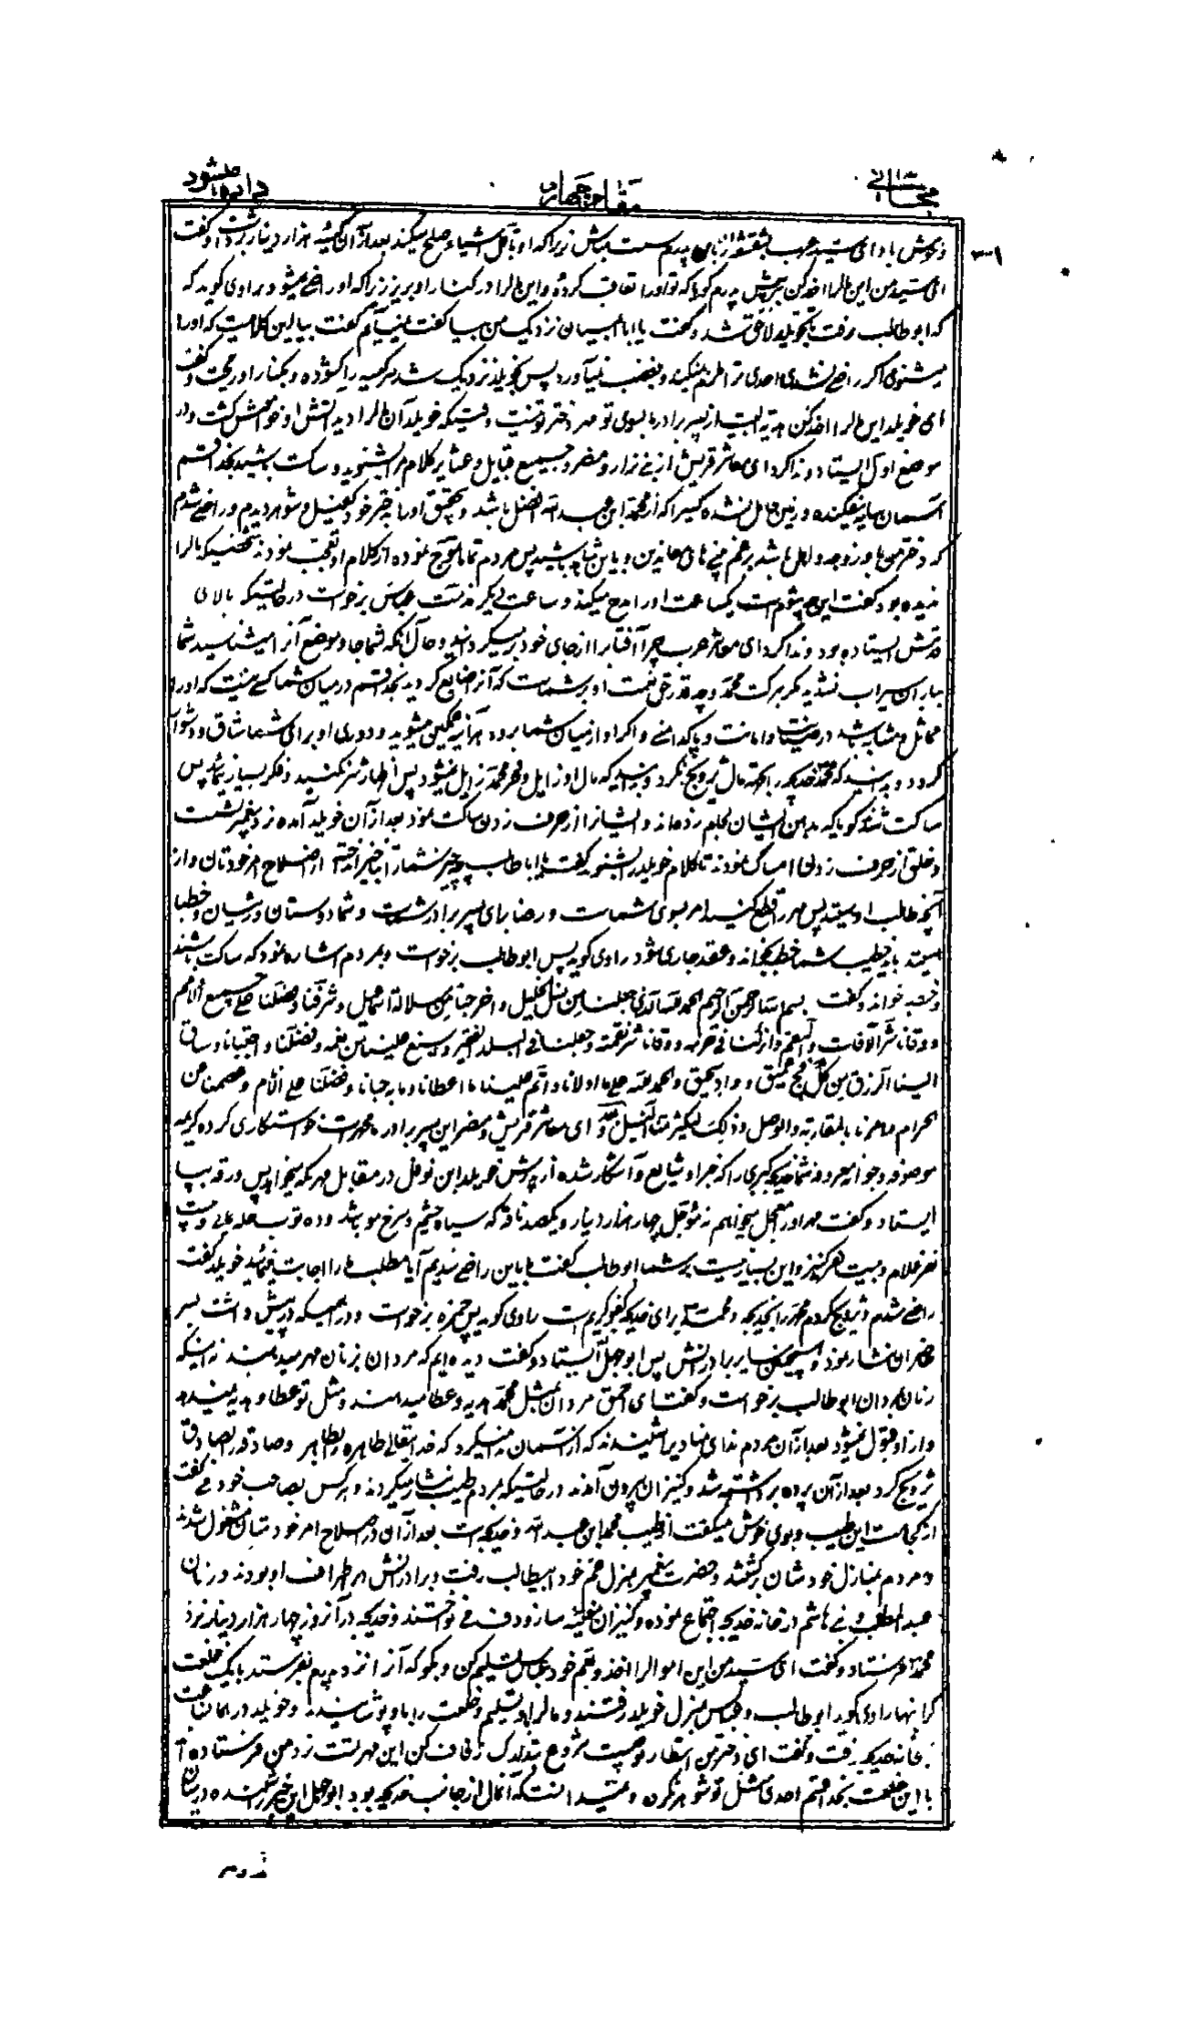 مقام چهارم
و خوش باد ای سید عرب پدرم مباش زیرا که او صلح میکند بعد از آن هزار دینار برداشت و گفت
ای سید من این مال را اخذ کن پدرم کویا که تو او را کرده و این مال را در کنار او بریز زیرا که او راضی میشود راوی کوید که
که ابو طالب رفت بخویلد ملاحق شد و گفت یا نزدیک من بیا گفت نمیآیم گفت بیا این کلامیست که او را
میشنوی اکر راضی نشدی احدی ترا نمیکند و بغضب نمیآورد پس بخویلد نزدیک شد سر کیسه را کشوده و بکنار او ریخت و گفت
ای خویلد این مال را اخذ کن هدیه ایست از پسر برادرم بسوی تو مهر دختر تو نیست وقتیکه خویلد آن مال را دید آتش او خواموش کشت و در
موضع اول ایستاد و ندا کرد ای معاشر قریش از بنی نزار و مضر و جمیع قبایل و عشایر کلام مرا بشنوید و ساکت باشید بخدا قسم
آسمان سایه نیفکنده و زمین حامل نشده کسیرا که از محمد ابن عبد الله افضل باشد و بتحقیق او را بدختر خود کفیل و شوهر دیدم و راضی شدم
که دختر من باو زوجه و اهل باشد برغم بینی های معاندین و باین شاهد باشید پس مردم تماما تموج نموده از کلام او تعجب نمودند شخصیکه مال را
ندیده بود گفت این چه شوم است یکساعت او را مدح میکند و ساعت دیکر مذمت عباس برخواست در حالتیکه بالای
قدمش ایستاده بود و ندا کرد ای معاشر عرب چرا آفتاب را از جای خود بر میکردانید و حال آنکه شما جا و موضع آنرا میشناسید شما
بباران سیراب نشدید مکر ببرکت محمد و چه قدر حق نعمت او بر شماست که آنرا ضایع کردید بخدا قسم در میان شما کسی نیست که او را
مماثل و مشابه باشد در صیانت و امانت و پاکدامنی و اکر او از میان شما برود هرآینه غمگین میشوید و دوری او برای شما شاق و دشوار
کردد و بدانید که محمد خدیجه را بجهة مال تزویج نکرد و بدانید که مال او زایل و فخر محمد زایل نمیشود پس اظهار شر نکنید و فکر بسیار نمائید پس
ساکت شدند کویا که بدهن ایشان لجام زده‌اند و ایشانرا از حرف زدن ساکت نمود بعد از آن خویلد آمده نزد پیغمبر نشست
و خلق از حرف زدن امساک نمودند تا کلام خویلد را بشنوند گفت یا ابا طالب چه چیز شما را بتاخیر انداخته از اصلاح امر خودتان و از
آنچه طالب او هستید پس مهر را قطع کنید امر بسوی شماست و رضا برای پسر برادر شماست و شما دوستان و رئیسان و خطبا
هستید باید خطیب شما خطبه بخواند و عقد جاری شود راوی کوید پس ابو طالب برخواست و بمردم اشاره نمود که ساکت باشند
و خطبه خواند و گفت بسم الله الرحمن الرحیم الحمد لله الذی جعلنا من نسل الخلیل و اخرجنا من سلالة اسمعیل و شرفنا و فضلنا علی جمیع الامم
و وقانا شر الآفات و النقم و انزلنا فی حرمه و وقانا شر نقمته و جعلنا فی البلد الفقیر و سبغ علینا من نعمه و فضلنا و اجتبانا و ساق
الینا الرزق من کل فج عمیق و واد سحیق و الحمد لله علی ما اولانا و انعم علینا ما اعطانا و ما به حبانا و فضلنا علی الانام و عصمنا من
الحرام و امرنا بالمقاربة و الوصل و ذلک لیکثر منا النسل ای معاشر قریش و مضر این پسر برادرم محمد است خواستکاری کرده کریمه
موصوفه و جوانه معروفه شما خدیجه کبری را که خبر او شایع و آشکار شده از پدرش خویلد ابن نوفل در مقابل مهریکه میخواهد پس ورقه بپا
ایستاد و گفت مهر او را معجل میخواهم نه مؤجل چهار هزار دینار و یکصد ناقه که سیاه چشم و سرخ مو باشد و ده ثوب حله یمانی و بیست
نفر غلام و بیست نفر کنیز و این بسیار نیست بر شما ابو طالب گفت باین راضی شدیم آیا مطلب ما را اجابت مینمائید خویلد گفت
راضی شدم و تزویج کردم محمد را بخدیجه و محمد ص برای خدیجه کفو کریم است راوی کوید پس حمزه برخواست و دراهمیکه در پیش داشت بسر
حاضران نثار نمود و همچنین سایر برادرانش پس ابو جهل ایستاد و گفت دیده‌ایم که مردان بزنان مهر میدهند نه اینکه
زنان بمردان ابو طالب برخواست و گفت ای احمق مردان بمثل محمد هدیه و عطا میدهند و مثل تو عطا و هدیه میدهد
و از او قبول نمیشود بعد از آن مردم ندای منادیرا شنیدند که از آسمان ندا میکرد که خدایتعالی طاهره را بطاهر و صادقه را بصادق
تزویج کرد بعد از آن پرده برداشته شد و کنیزان بیرون آمدند در حالتیکه بمردم طیب نثار میکردند و هر کس بصاحب خود می گفت
از کجاست این طیب و بوی خوش میگفت از طیب محمد ابن عبد الله و خدیجه است بعد از آن در اصلاح امر خودشان مشغول شدند
و مردم بمنازل خودشان برکشتند و حضرت پیغمبر بمنزل عم خود ابیطالب رفت و برادرانش در اطراف او بودند و زنان
عبد المطلب و بنی هاشم در خانه خدیجه اجتماع نموده و کنیزان مغنیه ساز و دف می نواختند و خدیجه در آنروز چهار هزار دینار نزد
محمد ص فرستاد و گفت ای سید من این اموالرا اخذ و بعم خود عباس تسلیم کن و بکو که آنرا نزد پدرم بفرستد با یک خلعت
کرانبها راوی کوید ابو طالب و عباس بمنزل خویلد رفتند و مالرا باو تسلیم و خلعت را باو پوشانیدند و خویلد در همان ساعت
بخانه خدیجه رفت و گفت ای دختر من انتظار تو چیست شروع بتدارک زفاف کن این مهر تست نزد من فرستاده‌اند
با این خلعت بخدا قسم احدی مثل تو شوهر نکرده و نمیدانست که آنمال از جانب خدیجه بود ابو جهل این خبر را شنیده در میان